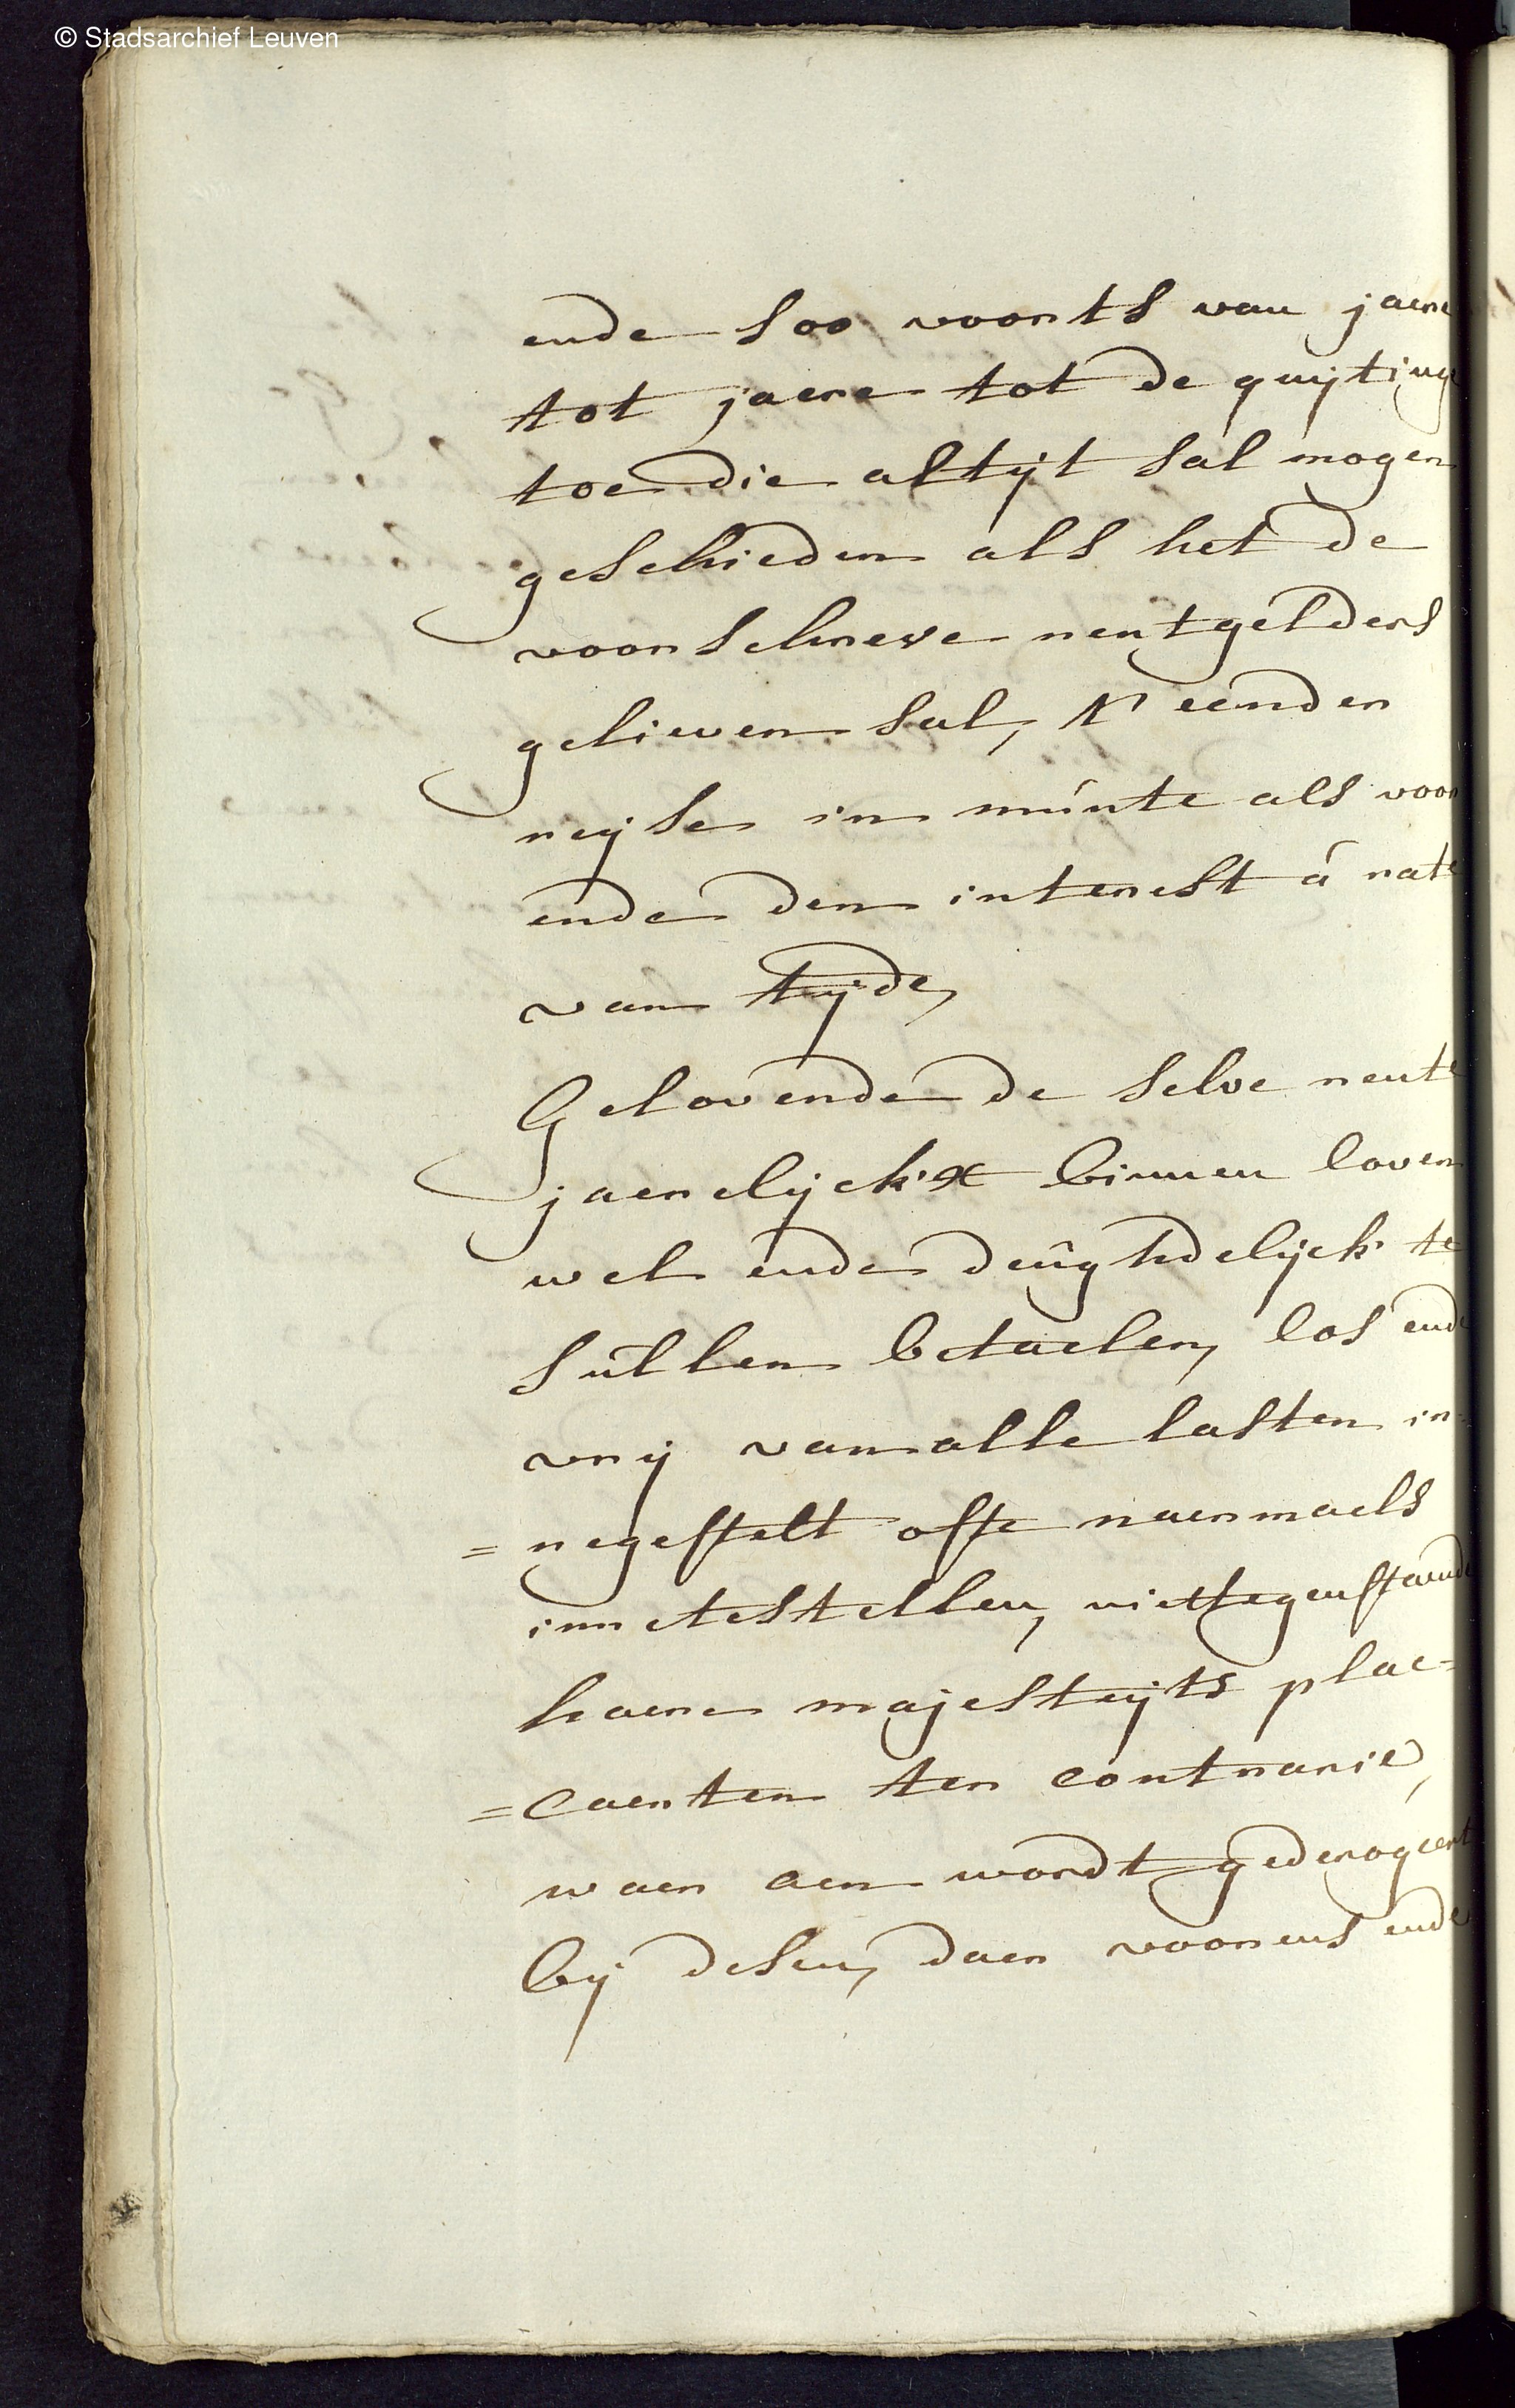 © Stadsarchief Leuven
ende soo voorts van jaere
tot jaere tot de quijtinge
toe die altijt sal mogen
geschieden als het de
voorschreve rentgelders
gelieven sal, t' eender
reyse in munte als voor
ende den interest á rate
van tyde,
Gelovende de selve rente
jaerelijckx binnen loven
wel ende deughdelijck te
sullen betaelen, los ende
vrij van alle lasten in-
=negestelt ofte naermaels
innetestellen, niettegenstaende
haere majesteyts plac=
=caerten ter contrarie,
waer aen wordt gederogeert
bij desen, daer vooreus ende